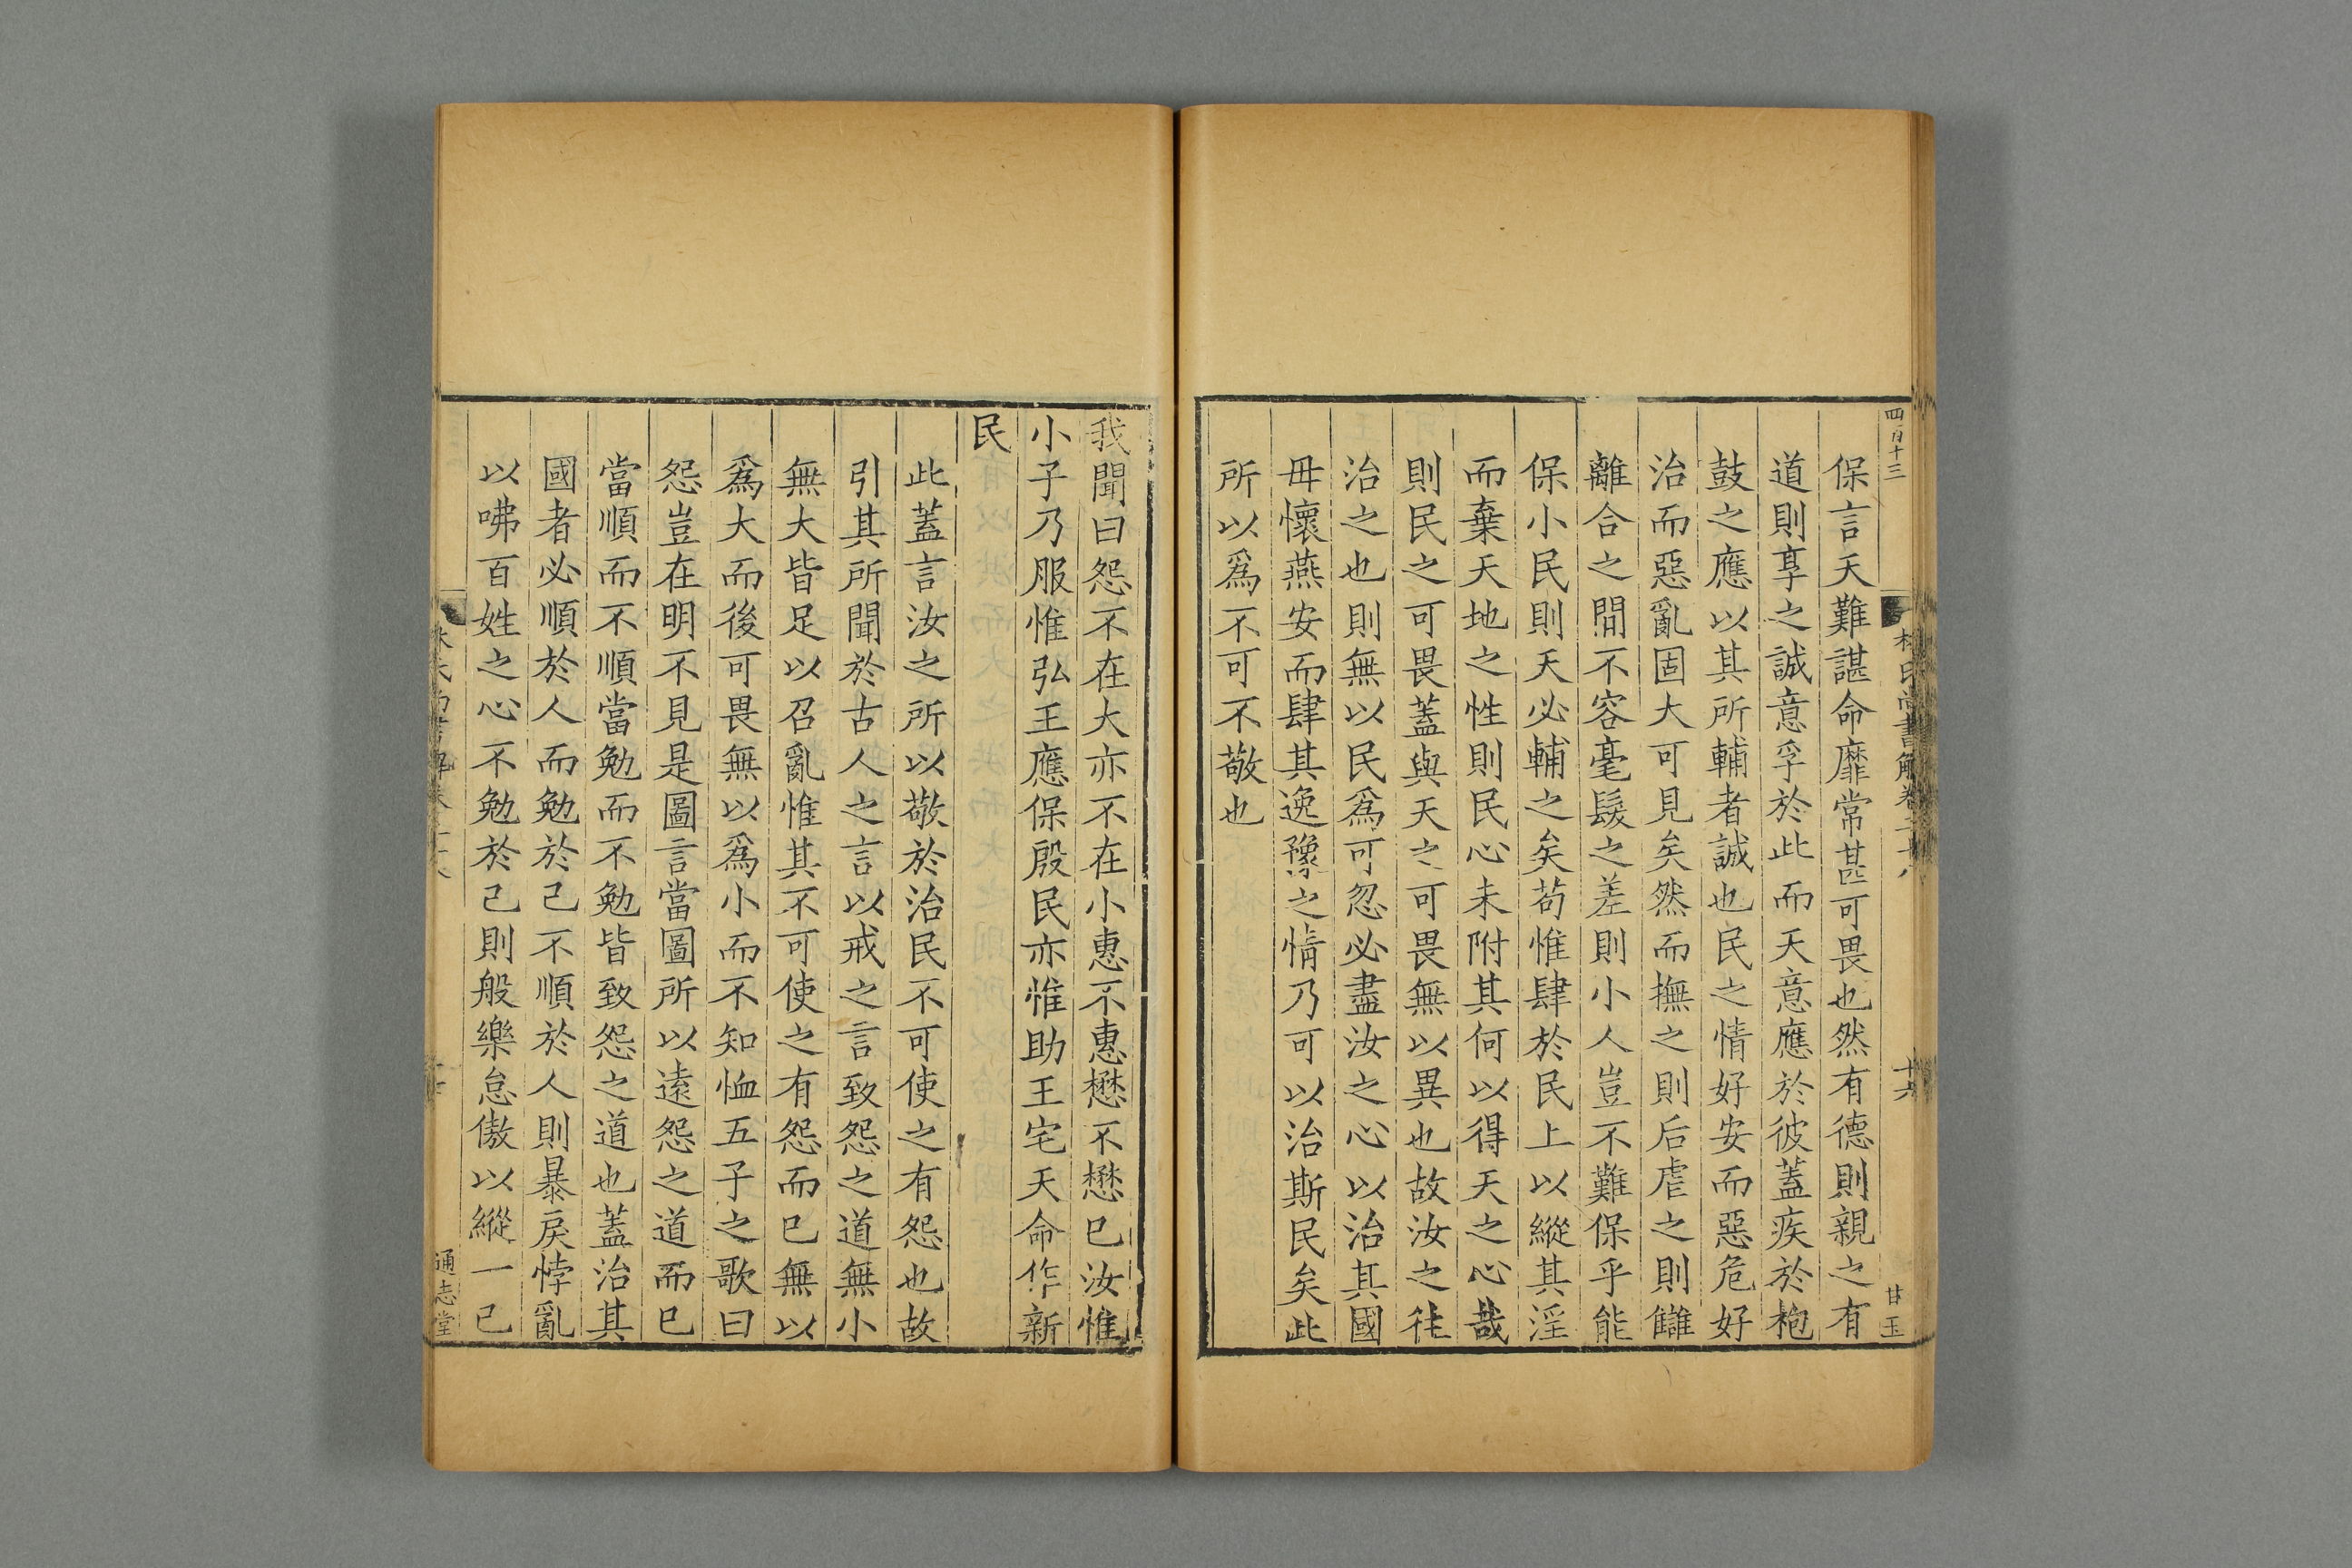 四百十三
林氏尚書解卷二十八
十六
甘玉
保言天難諶命靡常甚可畏也然有德則親之有
道則享之誠意孚於此而天意應於彼蓋疾於枹
鼓之應以其所輔者誠也民之情好安而惡危好
治而惡亂固大可見矣然而撫之則后虐之則讎
離合之間不容毫髮之差則小人豈不難保乎能
保小民則天必輔之矣苟惟肆於民上以縱其淫
而棄天地之性則民心未附其何以得天之心哉
則民之可畏蓋與天之可畏無以異也故汝之往
治之也則無以民爲可忽必盡汝之心以治其國
毋懷燕安而肆其逸豫之情乃可以治斯民矣此
所以爲不可不敬也
我聞曰怨不在大亦不在小惠不惠懋不懋已汝惟
小子乃服惟弘王應保殷民亦惟助王宅天命作新
民
此蓋言汝之所以敬於治民不可使之有怨也故
引其所聞於古人之言以戒之言致怨之道無小
無大皆足以召亂惟其不可使之有怨而已無以
爲大而後可畏無以爲小而不知恤五子之歌曰
怨豈在明不見是圖言當圖所以遠怨之道而已
當順而不順當勉而不勉皆致怨之道也蓋治其
國者必順於人而勉於己不順於人則暴戾悖亂
以咈百姓之心不勉於己則般樂怠傲以縱一己
通志堂